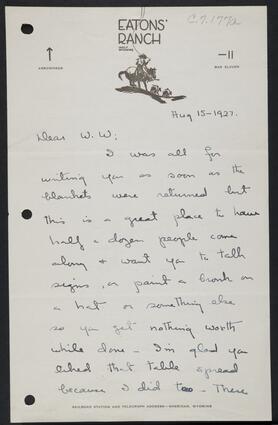 C.7.177a
EATONS'
RANCH
WOLF
WYOMING
ARROWHEAD
BAR ELEVEN
Aug 15-1927.
Dear W.W:
I was all for
writing you as soon as the
blankets were returned but
this is a great place to have
half a dozen people come
along & want you to talk
signs, or paint a bronk on
a hat or something else
so you get nothing worth
while done - I'm glad you
liked that table spread
because I did too - There
RAILROAD STATION AND TELEGRAPH ADDRESS—SHERIDAN, WYOMING